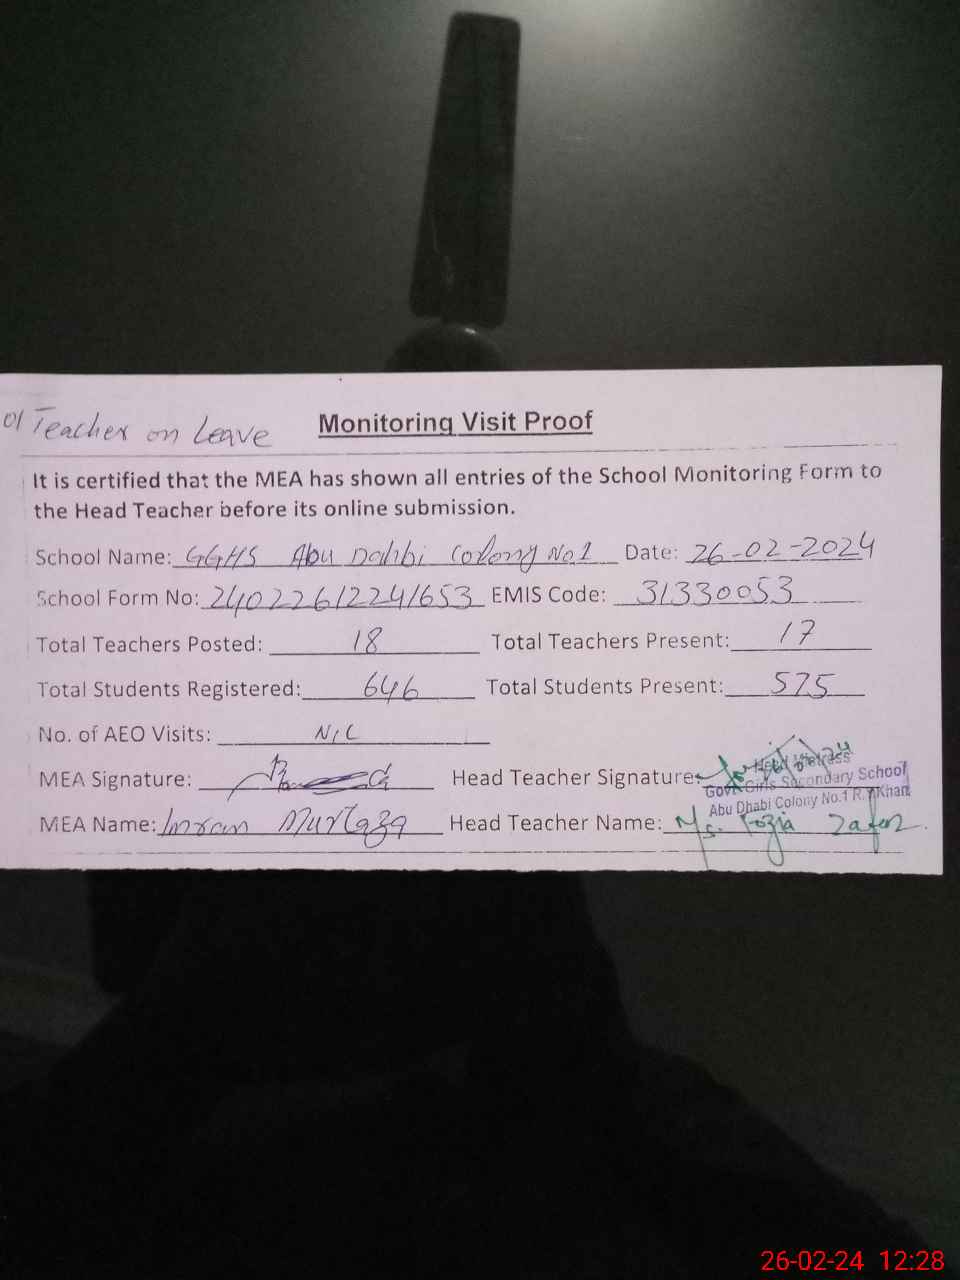 01 Teacher on Leave Monitoring Visit Proof
It is certified that the MEA has shown all entries of the School Monitoring Form to
the Head Teacher before its online submission.
School Name: GGHS Abu Dahbi Colony No.1 Date: 26-02-2024
School Form No: 240226122241653 EMIS Code: 31330053
Total Teachers Posted: 18 Total Teachers Present: 17
Total Students Registered: 646 Total Students Present: 575
No. of AEO Visits: NIL
MEA Signature: Head Teacher Signature:
Head Mistress
Govt. Girls Secondary School
Abu Dhabi Colony No.1 R.Y.Khan
MEA Name: Imran Murtaza Head Teacher Name: Ms. Fozia Zafar
26-02-24 12:28